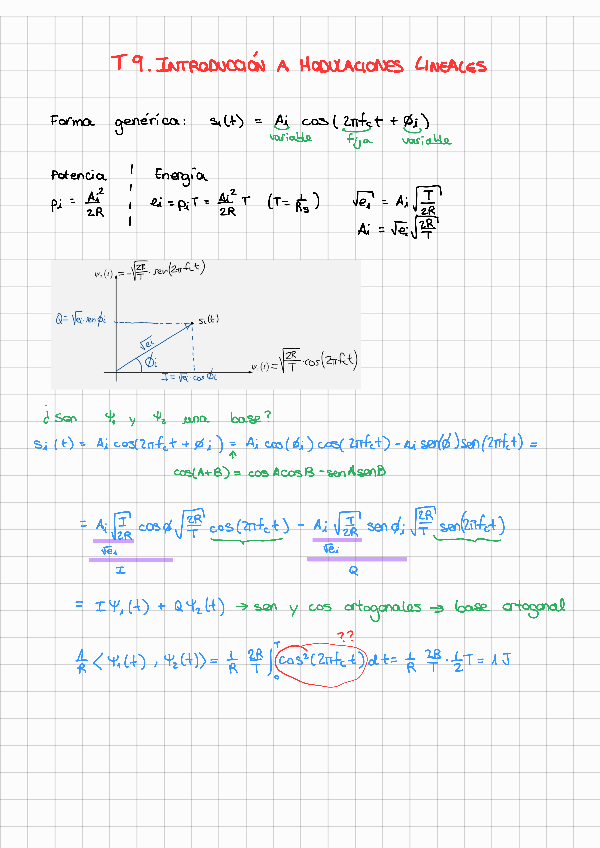 T9. INTRODUCCIÓN A MODULACIONES LINEALES
Forma genérica: si(t) = Ai cos(2πfct + φi)
variable fija variable
Potencia Energía
pi = Ai²/2R ei = piT = Ai²/2R T (T = 1/Rs) √e1 = Ai√(T/2R)
Ai = √ei √(2R/T)
ψ2(t) = -√(2R/T) · sen(2πfct)
Q = √ei · sen φi
si(t)
√ei
φi
I = √ei cos φi
ψ1(t) = √(2R/T) · cos(2πfct)
¿Son ψ1 y ψ2 una base?
si(t) = Ai cos(2πfct + φi) = Ai cos(φi) cos(2πfct) - Ai sen(φ) sen(2πfct) =
↑
cos(A+B) = cosA cosB - senA senB
= Ai √(T/2R) cosφ √(2R/T) cos(2πfct) - Ai √(T/2R) sen φi √(2R/T) sen(2πfct)
√e1 √ei
I Q
= I ψ1(t) + Q ψ2(t) → sen y cos ortogonales → base ortogonal
??
1/R <ψ1(t), ψ2(t)> = 1/R 2R/T ∫₀ᵀ cos²(2πfct) dt = 1/R 2R/T · 1/2 T = 1 J